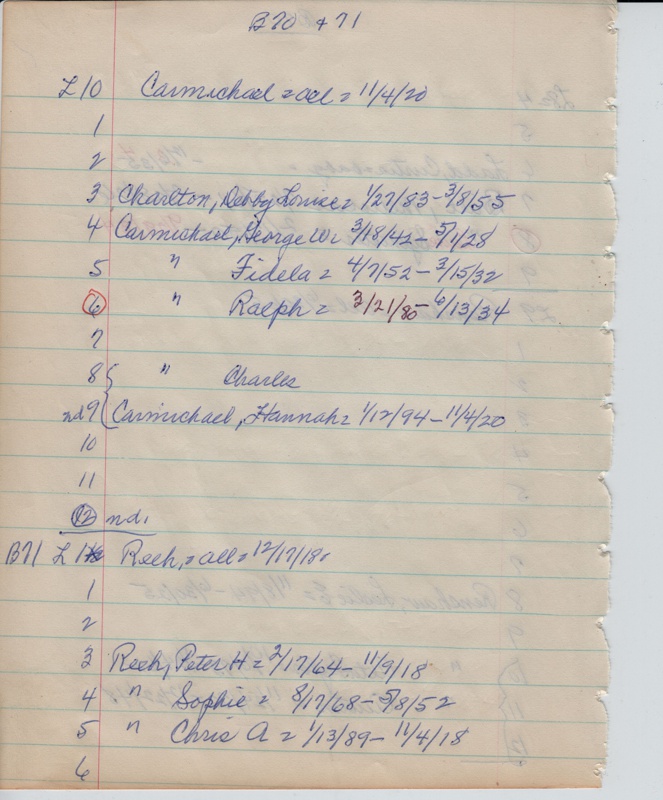 B70 + 71
L10 Carmichael = all = 11/4/20
1
2
3 Charlton, Debby Louise = 1/27/83 - 3/8/55
4 Carmichael, George W = 3/18/42 - 5/1/28
5 " Fidela = 4/7/52 - 3/15/32
6 " Ralph = 3/21/80 - 6/13/34
7
8 " Charles
nd 9 Carmichael, Hannah = 1/12/94 - 11/4/20
10
11
12 nd.
B71 L 11 Reeh, = all = 12/17/18.
1
2
3 Reeh, Peter H = 2/17/64 - 11/9/18
4 " Sophie = 8/17/68 - 5/8/52
5 " Chris A = 1/13/89 - 11/4/18
6